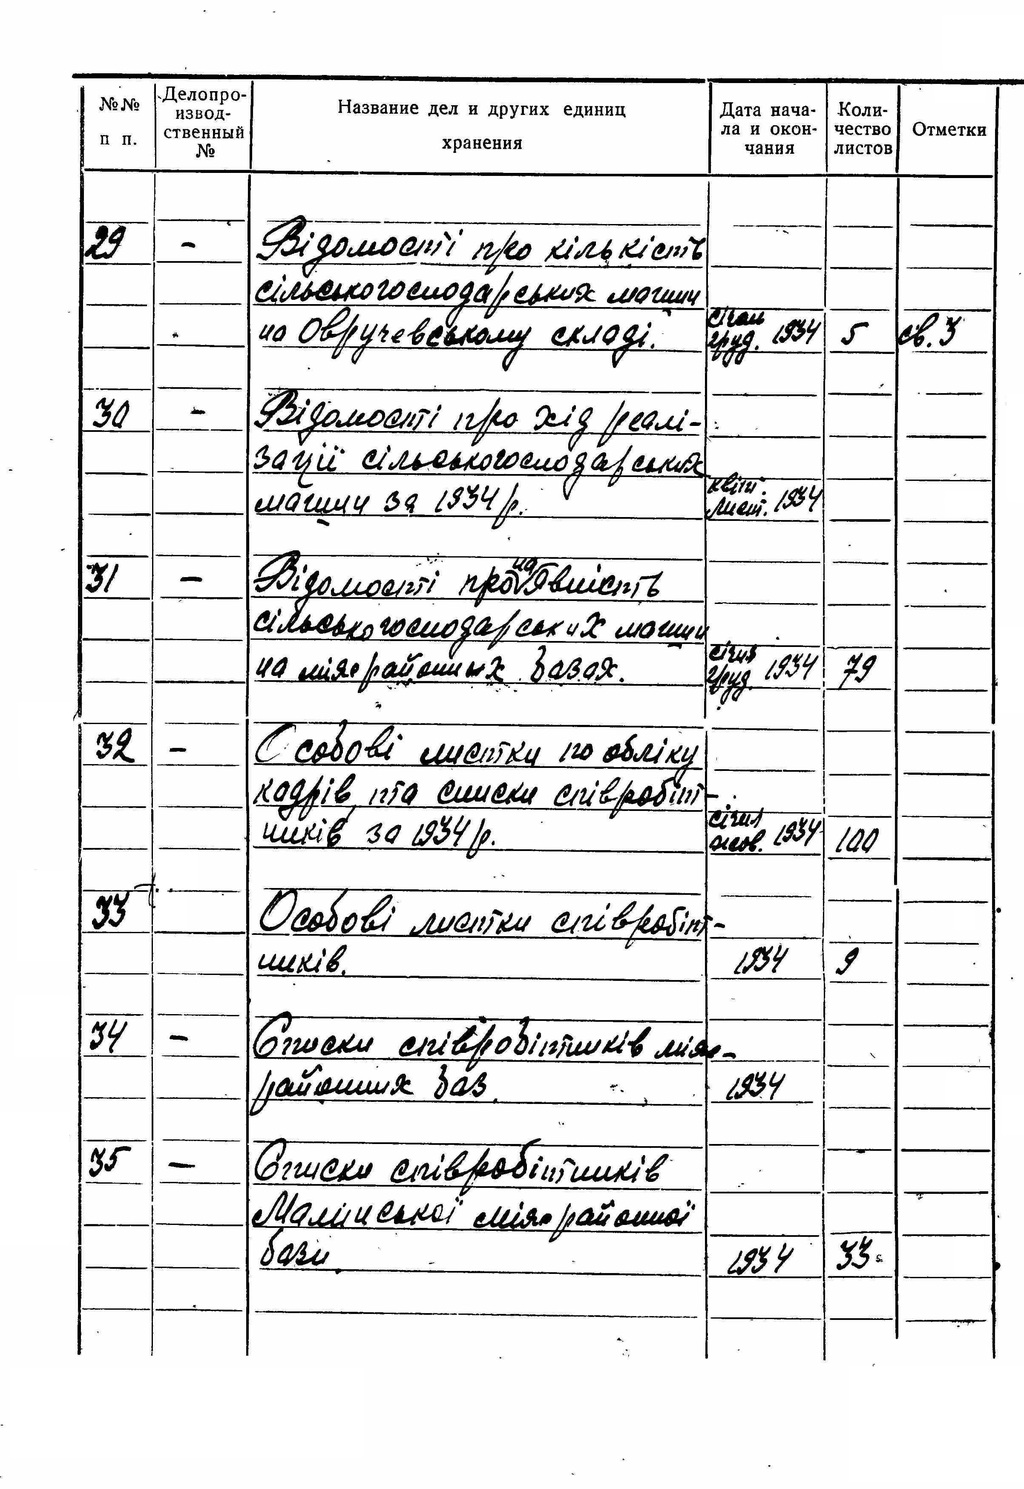 №№ п п.
Делопро-
извод-
ственный
№
Название дел и других единиц
хранения
Дата нача-
ла и окон-
чания
Коли-
чество
листов
Отметки
29 - Відомості про кількість
сільськогосподарських машин
на Овручевському складі. січень груд. 1934 5 св. 3
30 - Відомості про хід реалі-
зації сільськогосподарських
машин за 1934 р. квіт. лист. 1934
31 - Відомості про наявність
сільськогосподарських машин
на міжрайонних базах. січня груд. 1934 79
32 - Особові листки по обліку
кадрів та списки співробіт-
ників за 1934 р. січня жов. 1934 100
33 Особові листки співробіт-
ників. 1934 9
34 - Списки співробітників між-
районних баз. 1934
35 - Списки співробітників
Малинської міжрайонної
бази. 1934 33